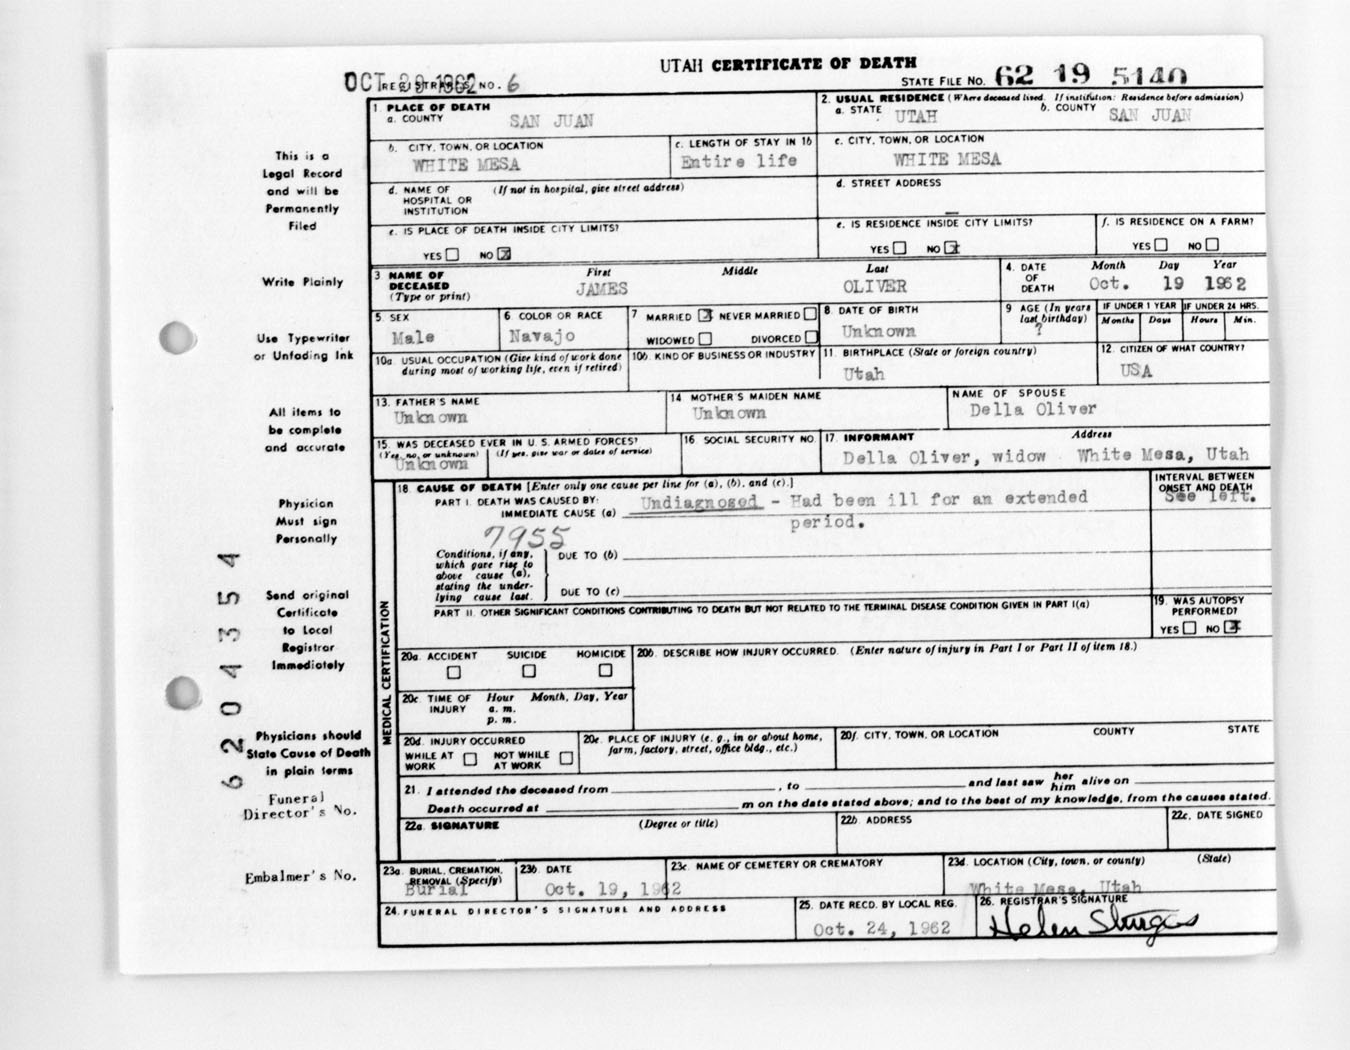 UTAH CERTIFICATE OF DEATH
OCT 29 1962 REGISTRAR'S NO. 6
STATE FILE NO. 62 19 5140
1. PLACE OF DEATH
a. COUNTY SAN JUAN
2. USUAL RESIDENCE (Where deceased lived. If institution: Residence before admission)
a. STATE UTAH b. COUNTY SAN JUAN
b. CITY, TOWN, OR LOCATION
WHITE MESA
c. LENGTH OF STAY IN 1b
Entire life
c. CITY, TOWN, OR LOCATION
WHITE MESA
d. NAME OF (If not in hospital, give street address)
HOSPITAL OR
INSTITUTION
d. STREET ADDRESS
e. IS PLACE OF DEATH INSIDE CITY LIMITS?
YES NO X
e. IS RESIDENCE INSIDE CITY LIMITS?
YES NO X
f. IS RESIDENCE ON A FARM?
YES NO
3 NAME OF DECEASED (Type or print)
First Middle Last
JAMES OLIVER
4. DATE OF DEATH
Month Day Year
Oct. 19 1962
5. SEX
Male
6 COLOR OR RACE
Navajo
7 MARRIED X NEVER MARRIED
WIDOWED DIVORCED
8. DATE OF BIRTH
Unknown
9 AGE (In years last birthday)
?
IF UNDER 1 YEAR IF UNDER 24 HRS.
Months Days Hours Min.
10a USUAL OCCUPATION (Give kind of work done during most of working life, even if retired)
10b. KIND OF BUSINESS OR INDUSTRY
11. BIRTHPLACE (State or foreign country)
Utah
12. CITIZEN OF WHAT COUNTRY?
USA
13. FATHER'S NAME
Unknown
14 MOTHER'S MAIDEN NAME
Unknown
NAME OF SPOUSE
Della Oliver
15. WAS DECEASED EVER IN U. S. ARMED FORCES?
(Yes, no, or unknown) (If yes, give war or dates of service)
Unknown
16. SOCIAL SECURITY NO.
17. INFORMANT Address
Della Oliver, widow White Mesa, Utah
MEDICAL CERTIFICATION
18. CAUSE OF DEATH [Enter only one cause per line for (a), (b), and (c).]
PART I. DEATH WAS CAUSED BY:
IMMEDIATE CAUSE (a) Undiagnosed - Had been ill for an extended
period.
INTERVAL BETWEEN
ONSET AND DEATH
See left.
7955
Conditions, if any,
which gave rise to
above cause (a),
stating the under-
lying cause last.
DUE TO (b)
DUE TO (c)
PART II. OTHER SIGNIFICANT CONDITIONS CONTRIBUTING TO DEATH BUT NOT RELATED TO THE TERMINAL DISEASE CONDITION GIVEN IN PART I(a)
19. WAS AUTOPSY
PERFORMED?
YES NO X
20a. ACCIDENT SUICIDE HOMICIDE
20b. DESCRIBE HOW INJURY OCCURRED. (Enter nature of injury in Part I or Part II of item 18.)
20c. TIME OF INJURY Hour Month, Day, Year
a. m.
p. m.
20d. INJURY OCCURRED
WHILE AT WORK NOT WHILE AT WORK
20e. PLACE OF INJURY (e. g., in or about home,
farm, factory, street, office bldg., etc.)
20f. CITY, TOWN, OR LOCATION COUNTY STATE
21. I attended the deceased from , to and last saw her him alive on
Death occurred at m on the date stated above; and to the best of my knowledge, from the causes stated.
22a. SIGNATURE (Degree or title)
22b. ADDRESS
22c. DATE SIGNED
23a. BURIAL, CREMATION,
REMOVAL (Specify)
Burial
23b. DATE
Oct. 19, 1962
23c. NAME OF CEMETERY OR CREMATORY
23d. LOCATION (City, town, or county) (State)
White Mesa, Utah
24. FUNERAL DIRECTOR'S SIGNATURE AND ADDRESS
25. DATE RECD. BY LOCAL REG.
Oct. 24, 1962
26. REGISTRAR'S SIGNATURE
Helen Sturges
This is a
Legal Record
and will be
Permanently
Filed
Write Plainly
Use Typewriter
or Unfading Ink
All items to
be complete
and accurate
Physician
Must sign
Personally
Send original
Certificate
to Local
Registrar
Immediately
Physicians should
State Cause of Death
in plain terms
Funeral
Director's No.
Embalmer's No.
6204354